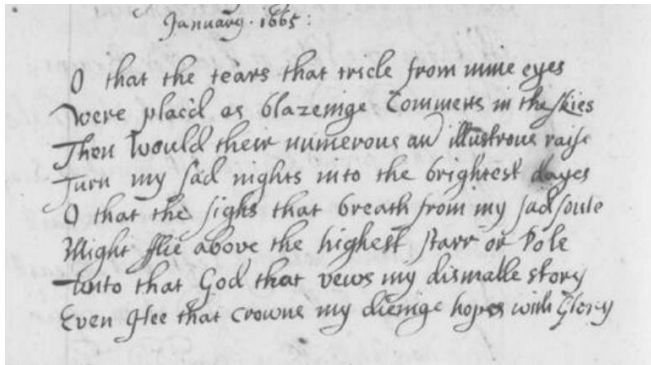 January. 1665:
O that the tears that tricle from mine eyes
Were plac'd as blazeinge Commets in the skies
Then would their numerous and illustrous raise
Turn my sad nights into the brightest dayes
O that the sighs that breath from my sad soule
Might flie above the highest starr or Pole
Unto that God that vews my dismalle story
Even Hee that crowns my dieinge hopes with Glory